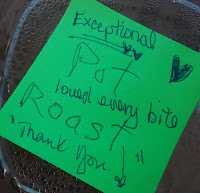 Exceptional
Pot
loved every bite
Roast
"Thank You!"